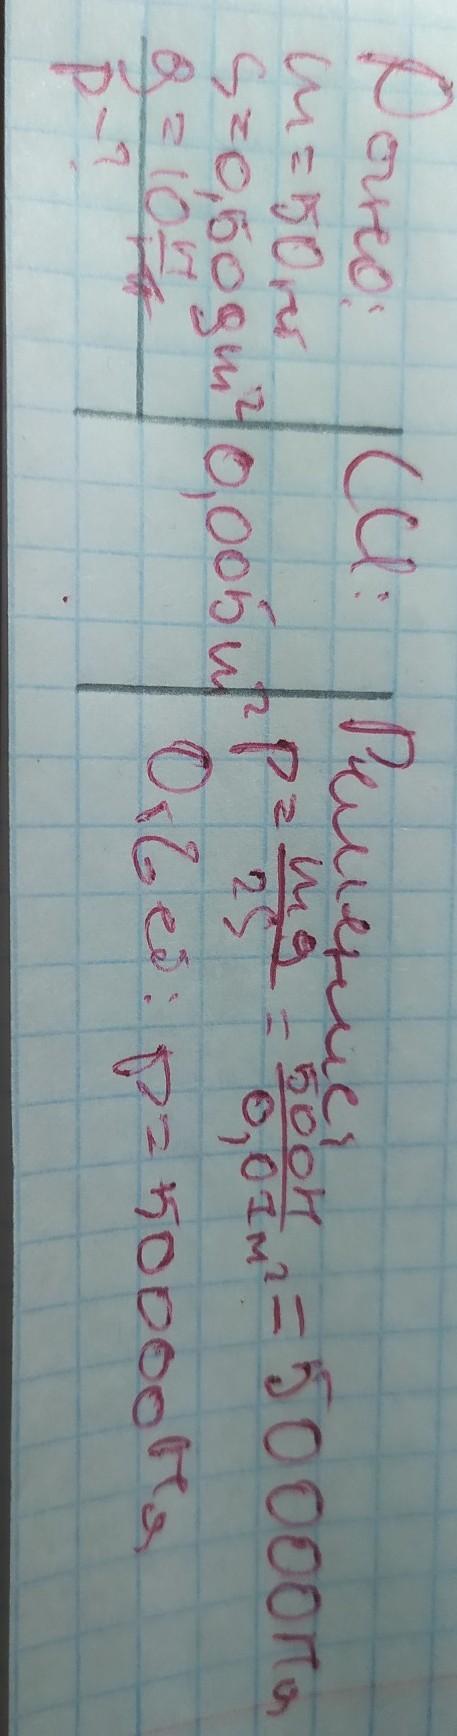 Дано:
m = 50 кг
S = 0,50 дм²
g = 10 Н/кг
p - ?
СИ:
0,005 м²
Решение:
P = mg/2S = 500Н/0,01м² = 50000Па
Ответ: P = 50000Па